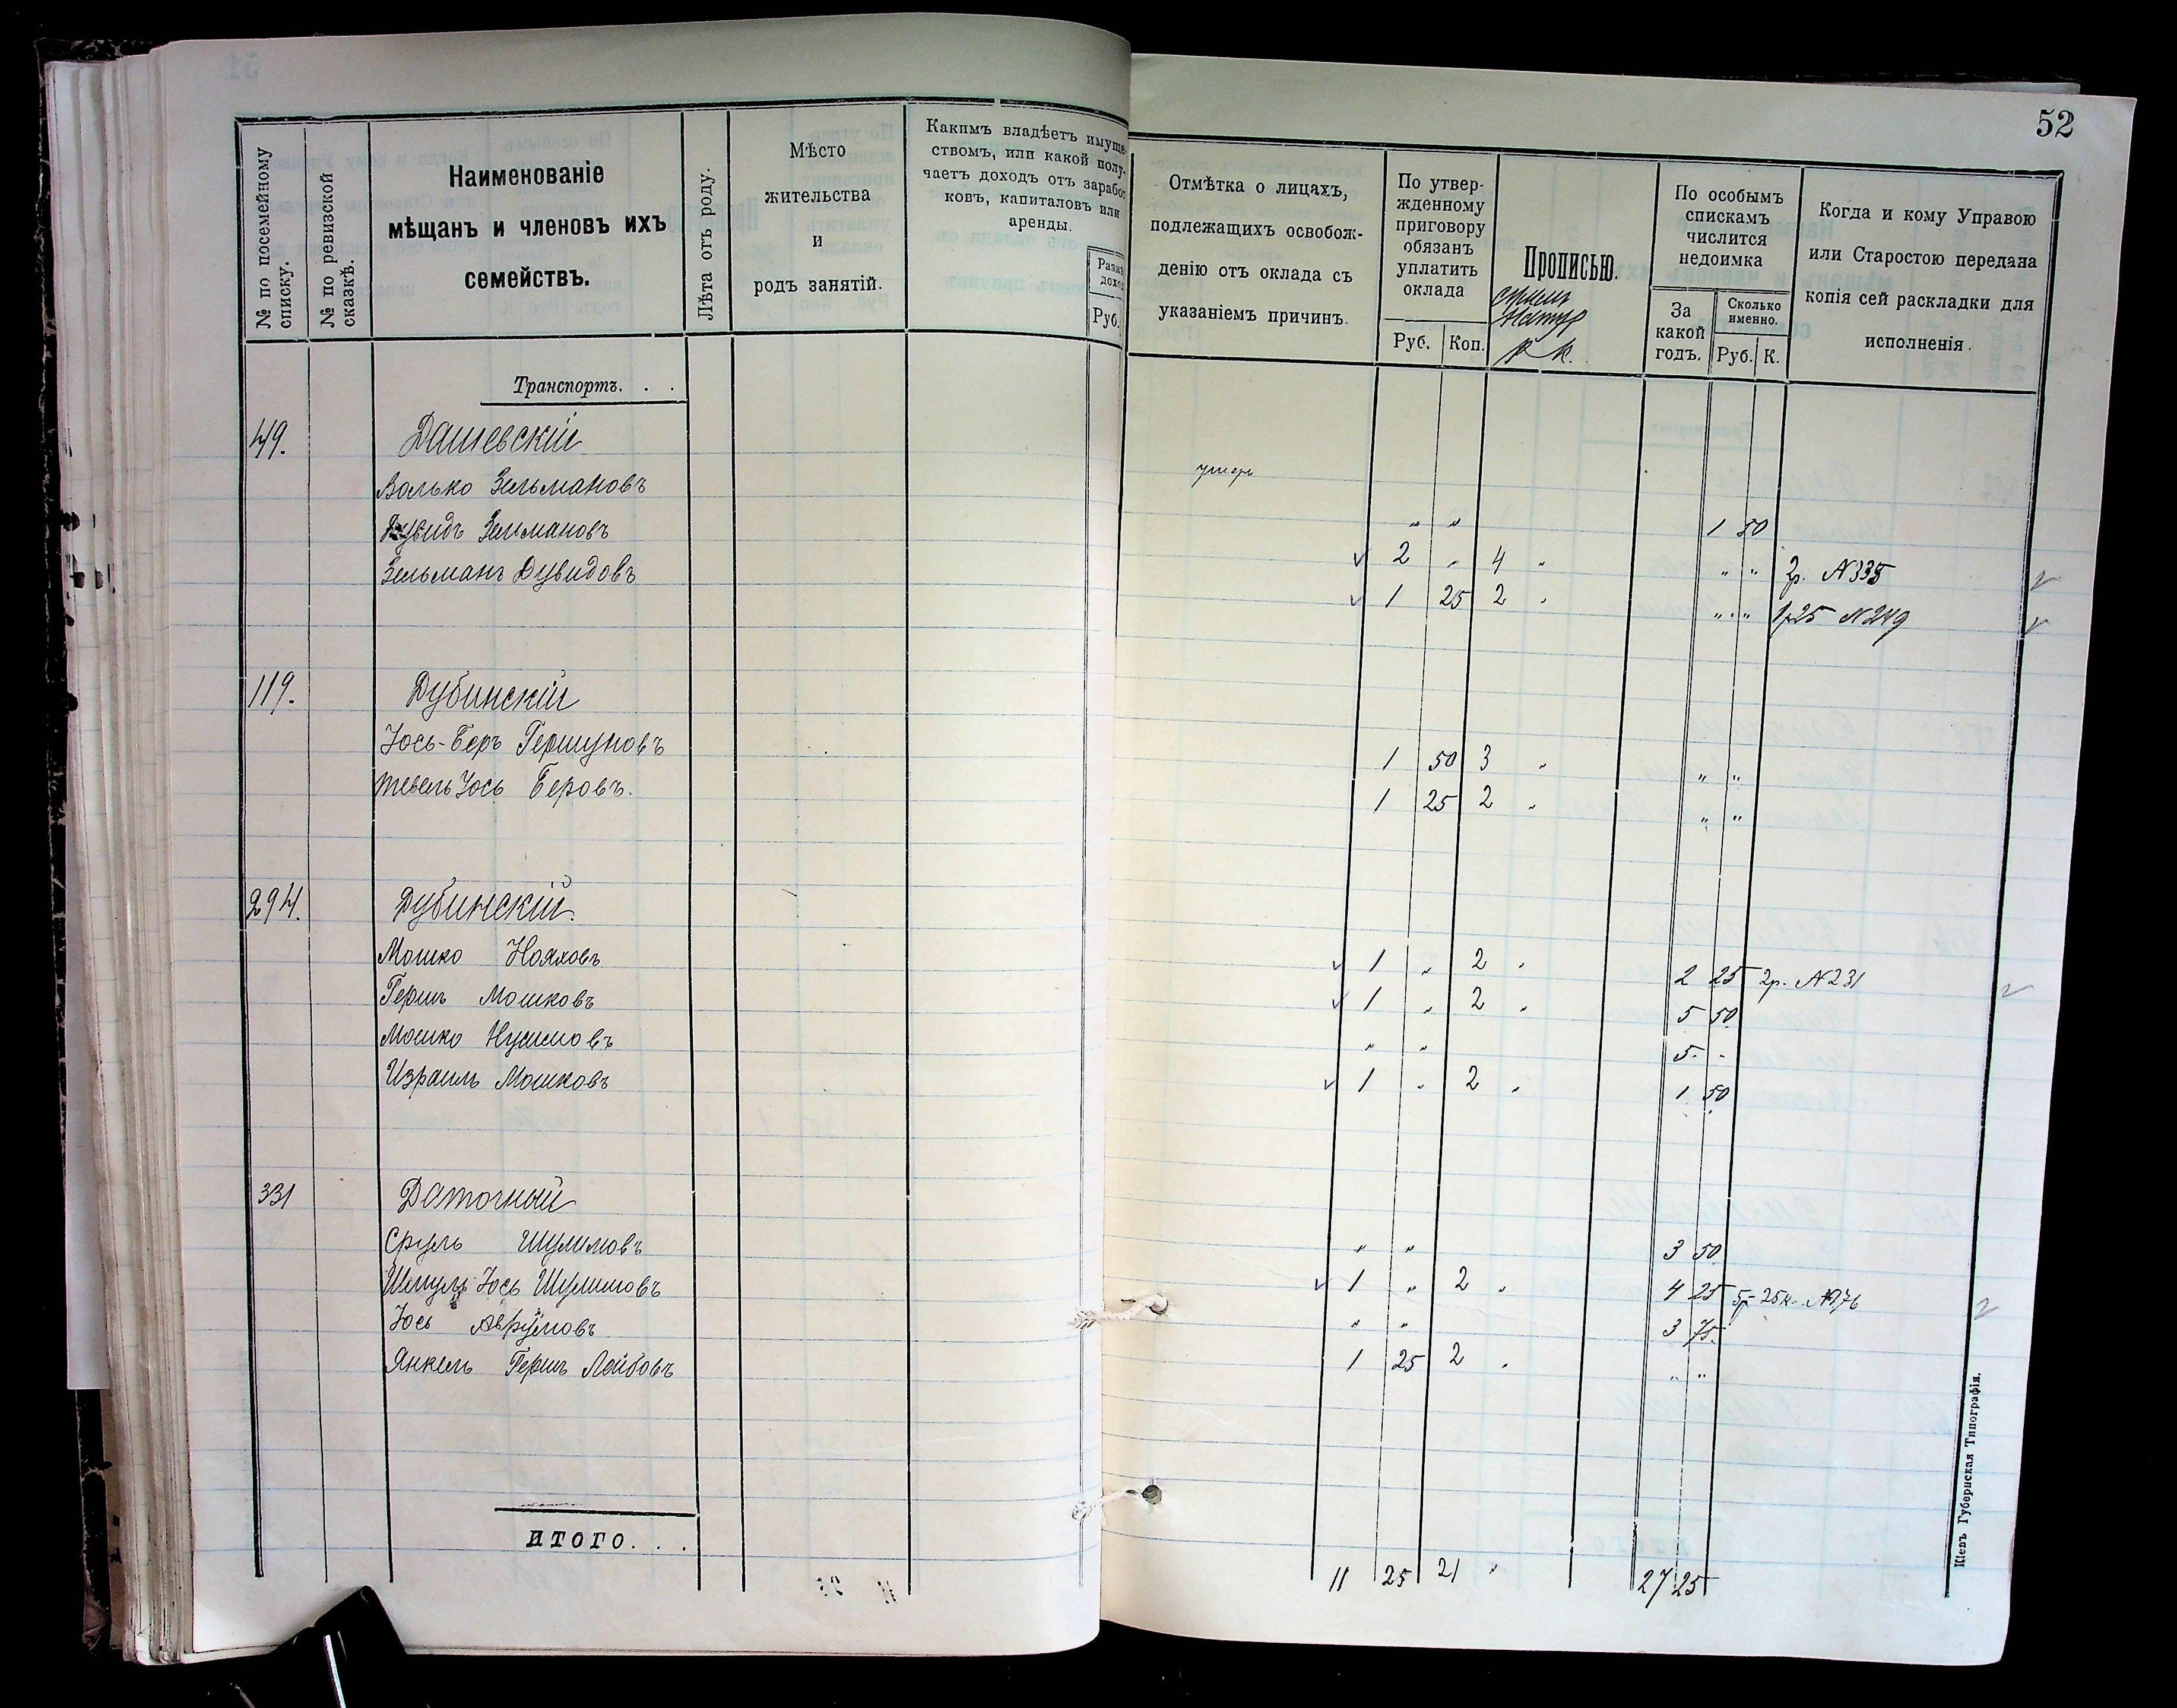 52
№ по посемейному списку.
№ по ревизской сказкѣ.
Наименованіе
мѣщанъ и членовъ ихъ
семействъ.
Лѣта отъ роду.
Мѣсто
жительства
и
родъ занятій.
Какимъ владѣетъ имуще-
ствомъ, или какой полу-
чаетъ доходъ отъ заработ
ковъ, капиталовъ или
аренды.
Руб.
Отмѣтка о лицахъ,
подлежащихъ освобож-
денію отъ оклада съ
указаніемъ причинъ.
По утвер-
жденному
приговору
обязанъ
уплатить
оклада
Руб. Коп.
Прописью.
р к.
По особымъ
спискамъ
числится
недоимка
За
какой
годъ.
Сколько
именно.
Руб. К.
Когда и кому Управою
или Старостою передана
копія сей раскладки для
исполненія.
Транспортъ. . .
49. Дашевскій
Волько Зельмановъ умеръ " " 1 50
Дувидъ Зельмановъ 2 " 4 " " " 2р. N335
Зельманъ Дувидовъ 1 25 2 " " " 1р25 N249
119. Дубинскій
Іось-Беръ Гершуновъ 1 50 3 " " "
Тевель Іось Беровъ. 1 25 2 " " "
294. Дубинскій.
Мошко Нояховъ 1 " 2 " 2 25 2р. N231
Гершъ Мошковъ 1 " 2 " 5 50
Мошко Нусимовъ " " 5 -
Израиль Мошковъ 1 " 2 " 1 50
331 Даточный
Сруль Шулимовъ " " 3 50
Іось Шулимовъ 1 " 2 " 4 25 5р 25к. N176
Іось Аврумовъ " " 3 75
Янкель Гершъ Лейбовъ 1 25 2 " " "
ИТОГО. . .
11 25 21 " 27 25
Кіевъ Губернская Типографія.